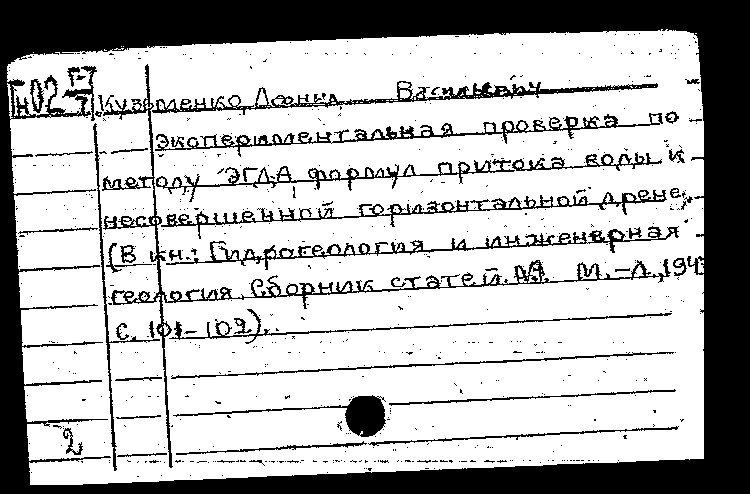 Кузьменко, Леонид Васильевич
Экспериментальная проверка по
методу ЭГДА формул притока воды к
несовершенной горизонтальной дрене.
(В кн.: Гидрогеология и инженерная
геология. Сборник статей. М.-Л., 194
с. 101-109).
2